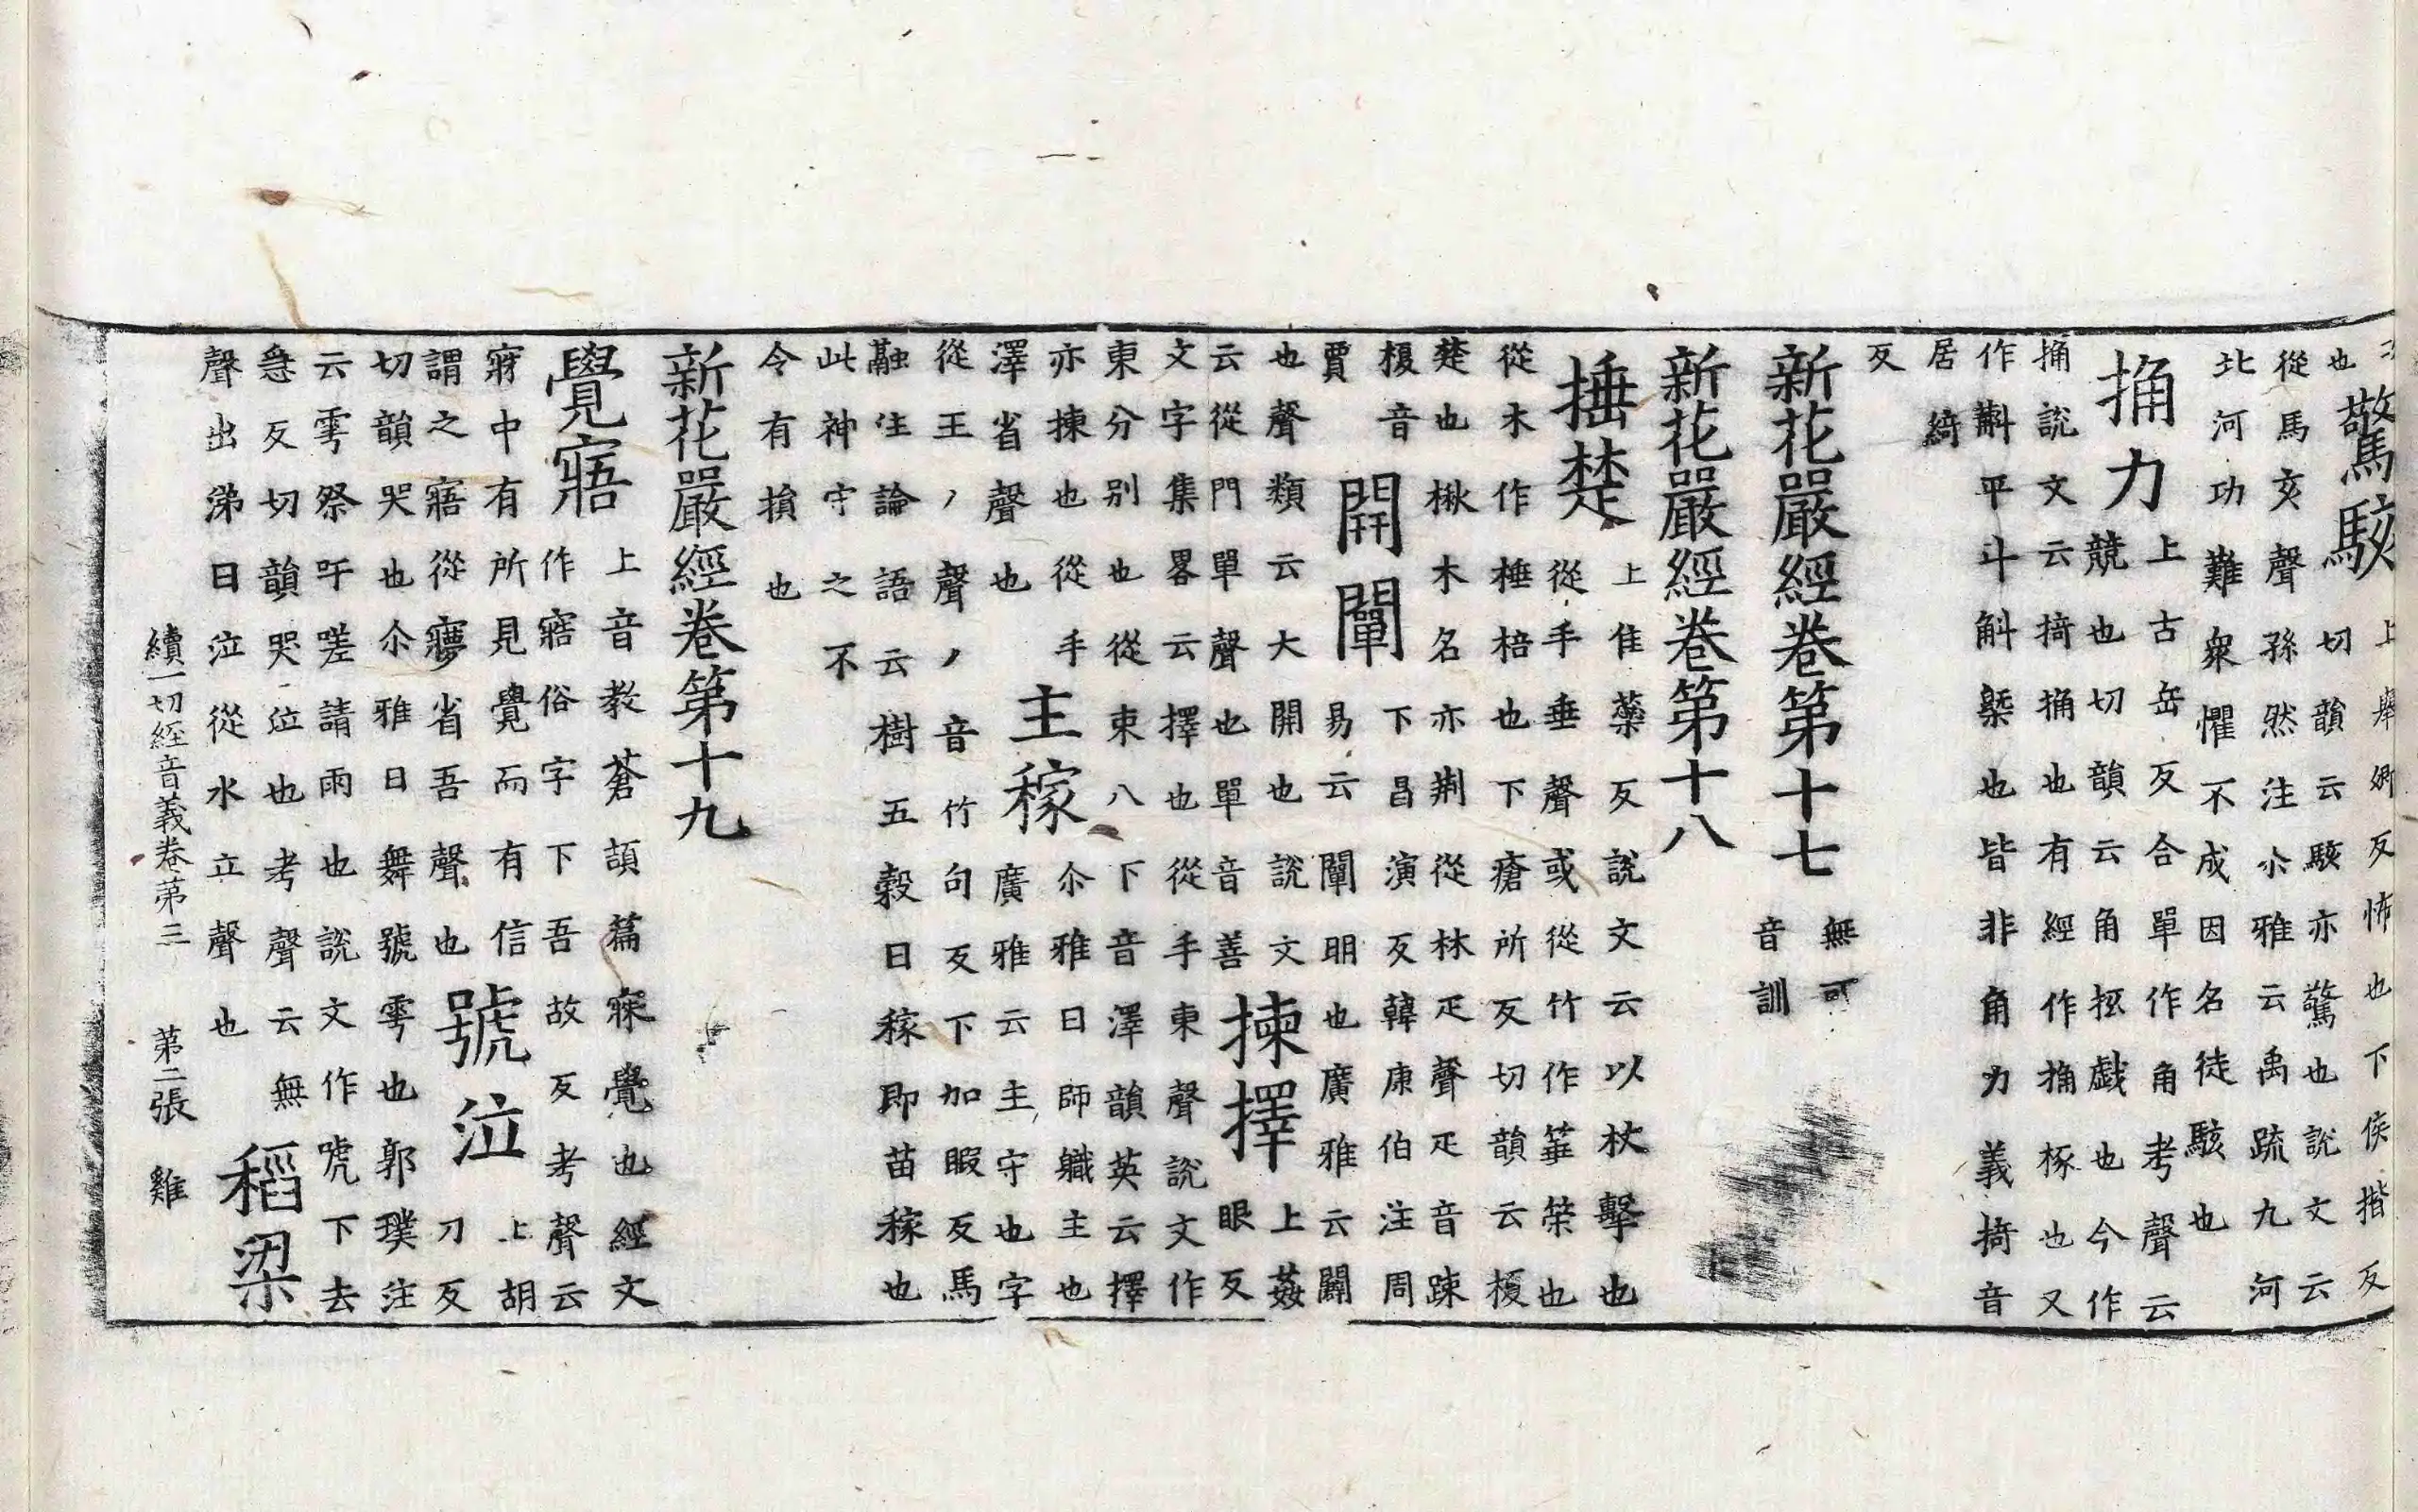 也
驚駭
上舉卿反怖也下侯揩反
切韻云駭亦驚也說文云
從馬亥聲孫然注尒雅云禹疏九河
北河功難衆懼不成因名徒駭也
捔力
上古岳反合單作角考聲云
競也切韻云角抂戲也今作
捔說文云掎捔也有經作捔椓也又
作斠平斗斛槩也皆非角力義掎音
居綺
反
新花嚴經卷第十七
無可
音訓
新花嚴經卷第十八
捶楚
上隹蘂反說文云以杖擊也
從手垂聲或從竹作箠策也
從木作棰棓也下瘡所反切韻云榎
楚也楸木名亦荆從林疋聲疋音踈
榎音
賈
開闡
下昌演反韓康伯注周
易云闡明也廣雅云闢
也聲類云大開也說文
云從門單聲也單音善
揀擇
上姦
眼反
文字集畧云擇也從手東聲說文作
柬分別也從束八下音澤韻英云擇
亦揀也從手
澤省聲也
主稼
尒雅曰師軄主也
廣雅云主守也字
從王丿聲丿音竹句反下加暇反馬
融注論語云樹五穀曰稼即苗稼也
此神守之不
令有損也
新花嚴經卷第十九
覺寤
上音教蒼頡篇寐覺也經文
作寤俗字下吾故反考聲云
寐中有所見覺而有信
謂之寤從㝱省吾聲也
號泣
上胡
刀反
切韻哭也尒雅曰舞號雩也郭璞注
云雩祭吁嗟請雨也說文作唬下去
急反切韻哭泣也考聲云無
聲出涕曰泣從水立聲也
稻粱
續一切經音義卷第三 第二張 雞